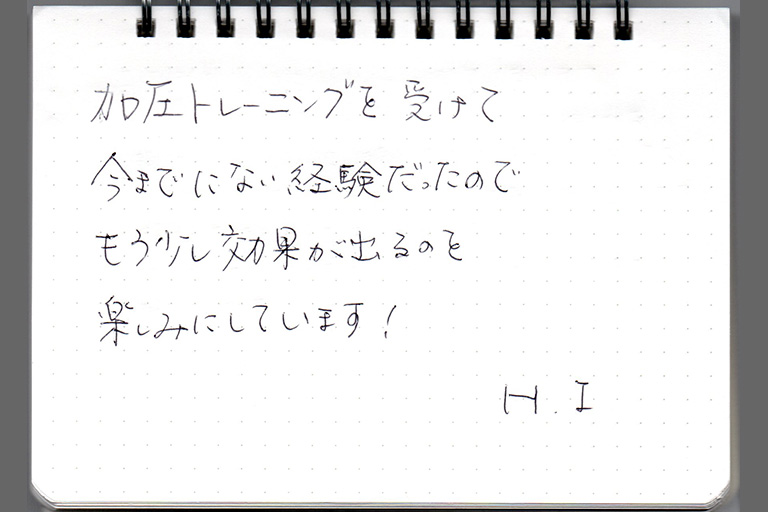 加圧トレーニングを受けて
今までにない経験だったので
もう少し効果が出るのを
楽しみにしています！
H.I